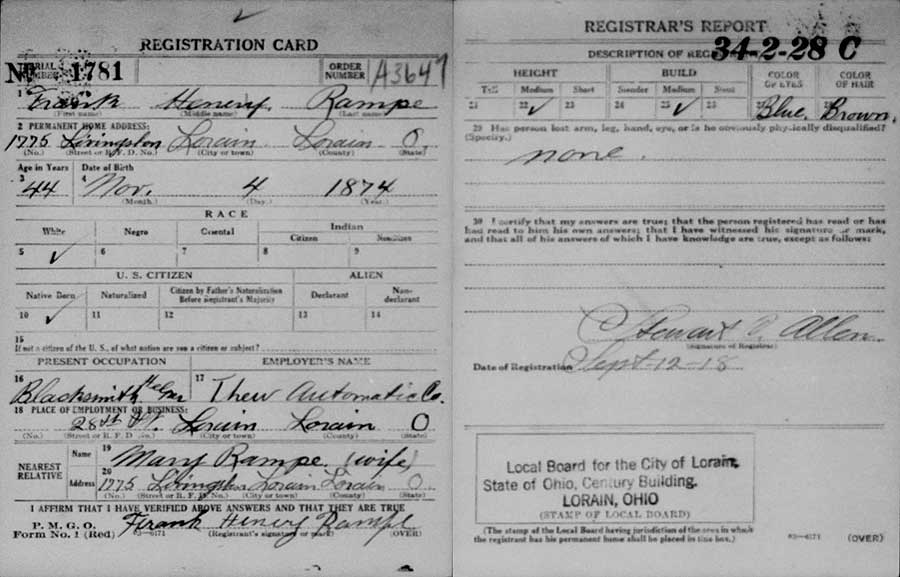 REGISTRATION CARD
SERIAL NUMBER 1781 ORDER NUMBER A3647
1 Frank Henery Rampe
(First name) (Middle name) (Last name)
2 PERMANENT HOME ADDRESS:
1775 Livingston Lorain Lorain O.
(No.) (Street or R. F. D. No.) (City or town) (County) (State)
Age in Years Date of Birth
3 4
44 Nov. 4 1874
(Month.) (Day.) (Year.)
RACE
White Negro Oriental Indian
Citizen Noncitizen
5 ✓ 6 7 8 9
U. S. CITIZEN ALIEN
Native Born Naturalized Citizen by Father's Naturalization Before Registrant's Majority Declarant Non-declarant
10 ✓ 11 12 13 14
15
If not a citizen of the U. S., of what nation are you a citizen or subject?
PRESENT OCCUPATION EMPLOYER'S NAME
16 17
Blacksmith Thew Automatic Co.
18 PLACE OF EMPLOYMENT OR BUSINESS:
28th St. Lorain Lorain O
(No.) (Street or R. F. D. No.) (City or town) (County) (State)
NEAREST RELATIVE
Name 19 Mary Rampe (wife)
Address 20 1775 Livingston Lorain Lorain O
(No.) (Street or R. F. D. No.) (City or town) (County) (State)
I AFFIRM THAT I HAVE VERIFIED ABOVE ANSWERS AND THAT THEY ARE TRUE
P. M. G. O.
Form No. 1 (Red) Frank Henery Rampe
03—6171 (Registrant's signature or mark) (OVER)
REGISTRAR'S REPORT
34-2-28 C
DESCRIPTION OF
HEIGHT BUILD COLOR OF EYES COLOR OF HAIR
Tall Medium Short Slender Medium Stout
21 22 ✓ 23 24 25 ✓ 26 27 Blue 28 Brown.
29 Has person lost arm, leg, hand, eye, or is he obviously physically disqualified?
(Specify.)
none.
30 I certify that my answers are true; that the person registered has read or has
had read to him his own answers; that I have witnessed his signature or mark,
and that all of his answers of which I have knowledge are true, except as follows:
Stewart Allen
(Signature of Registrar)
Date of Registration Sept-12-18
Local Board for the City of Lorain,
State of Ohio, Century Building,
LORAIN, OHIO
(STAMP OF LOCAL BOARD)
(The stamp of the Local Board having jurisdiction of the area in which
the registrant has his permanent home shall be placed in this box.)
03—6171 (OVER)